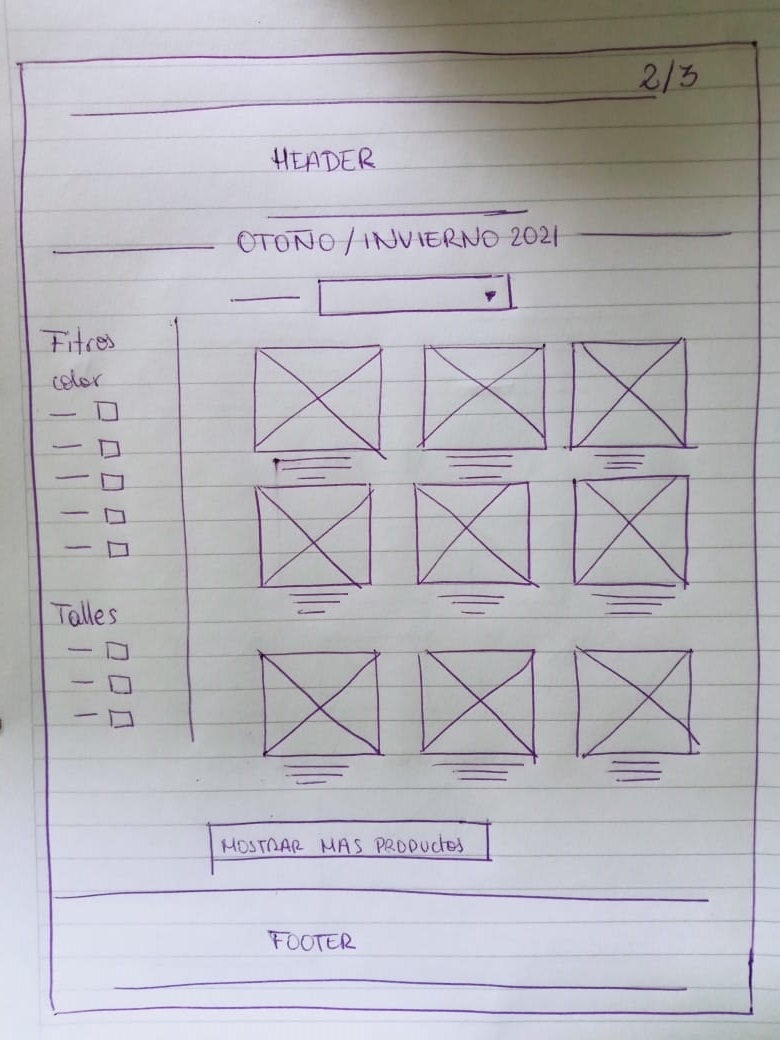 2/3
HEADER
OTOÑO/INVIERNO 2021
Fitros
color
Talles
MOSTRAR MAS PRODUCTOS
FOOTER